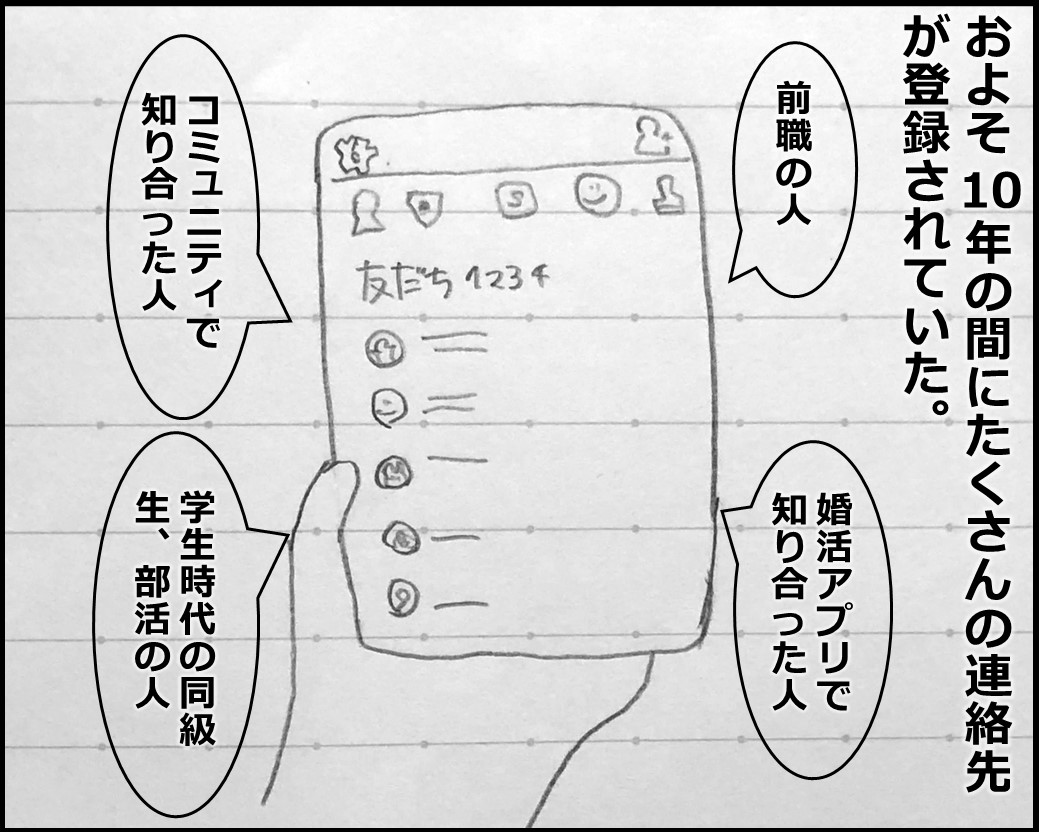 およそ10年の間にたくさんの連絡先
が登録されていた。
前職の人
コミュニティで
知り合った人
友だち 1234
婚活アプリで
知り合った人
学生時代の同級
生、部活の人